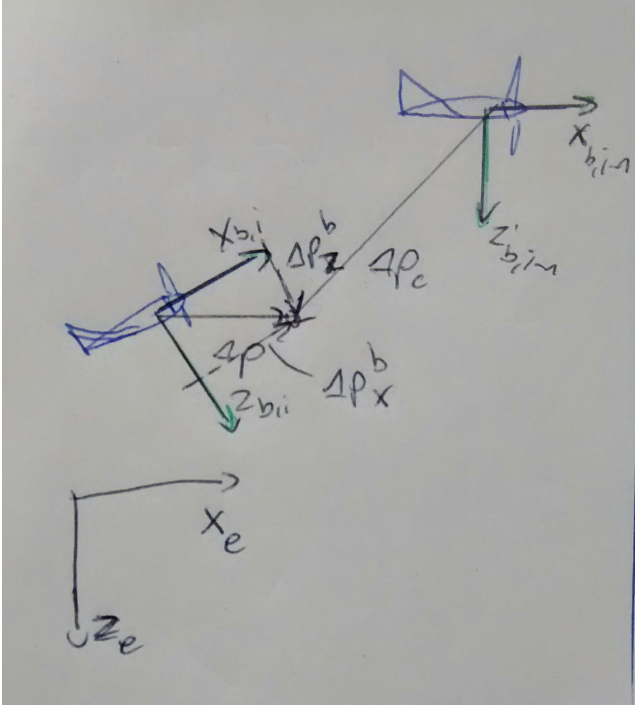 x b,i-1
z b,i-1
x b,i
Δp z b
Δp c
Δp
Δp x b
z b,i
x e
z e